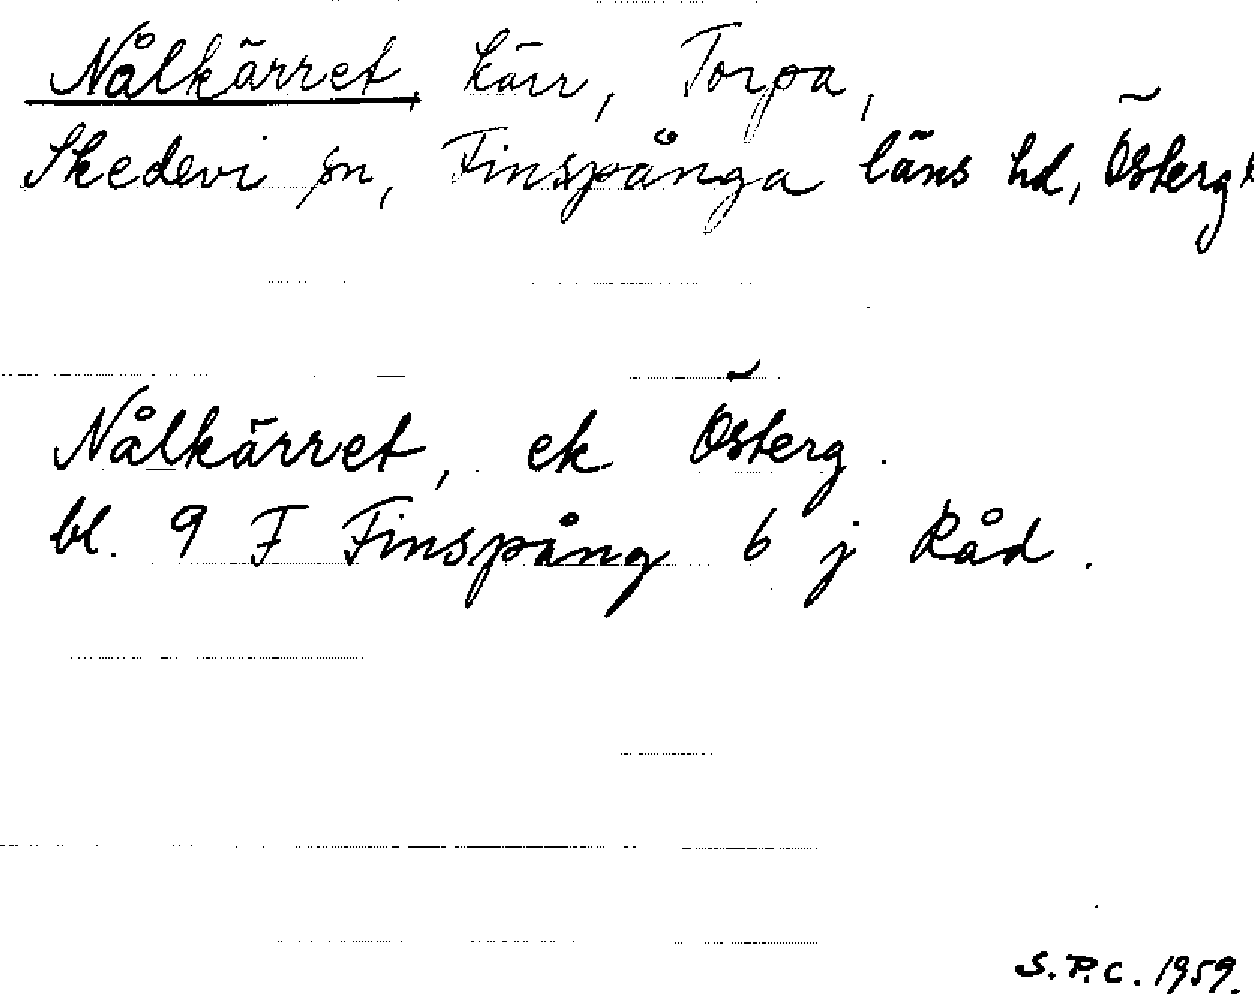 Nålkärret, kärr, Torpa,
Skedevi sn, Finspånga läns hd, Österg
Nålkärret, ek Österg.
bl. 9 F Finspång 6 j Råd.
S.P.C. 1959.